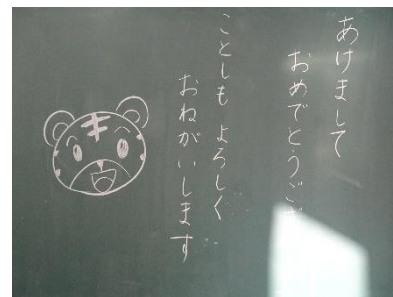 あけまして
おめでとうご
ことしも よろしく
おねがいします